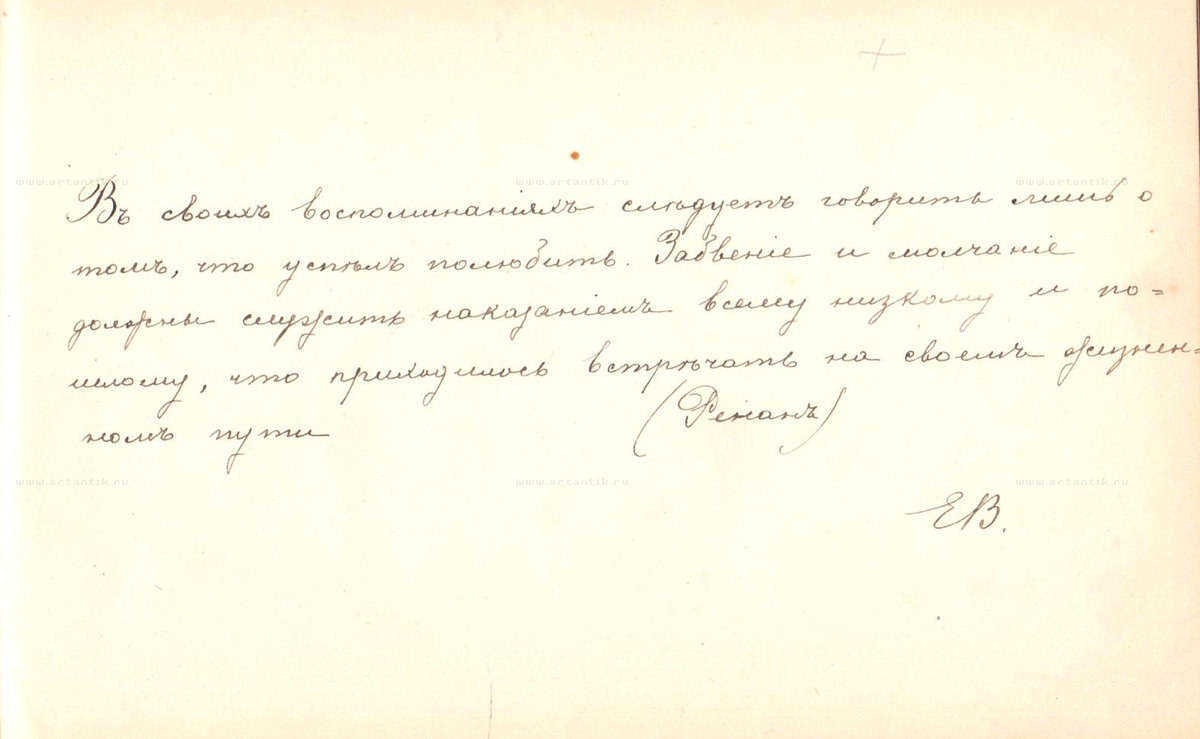 www.artantik.ru www.artantik.ru www.artantik.ru
Въ своихъ воспоминаніяхъ слѣдуетъ говорить лишь о
томъ, что успѣлъ полюбить. Забвеніе и молчаніе
должны служить наказаніемъ всему низкому и по=
шлому, что приходилось встрѣчать на своемъ жизнен=
номъ пути (Ренанъ)
www.artantik.ru www.artantik.ru www.artantik.ru
ЕВ.